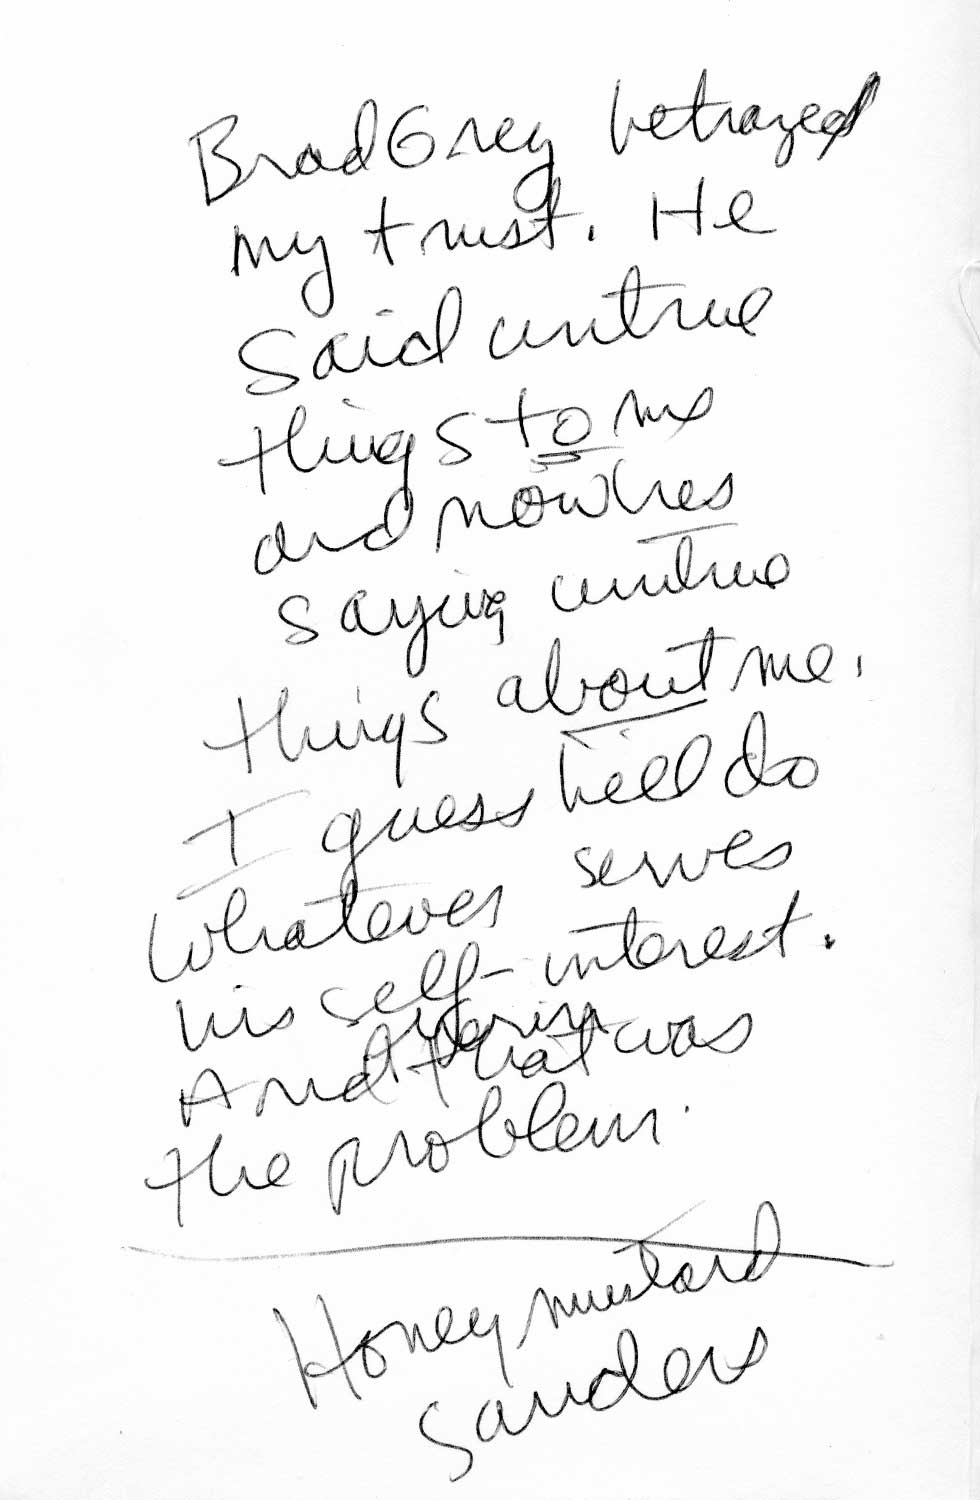 Brad Grey betrayed
my trust. He
said untrue
things to me
and now he's
saying untrue
things about me.
I guess he'll do
whatever serves
his self-interest.
And that was
the problem.
Honey mustard
Sanders